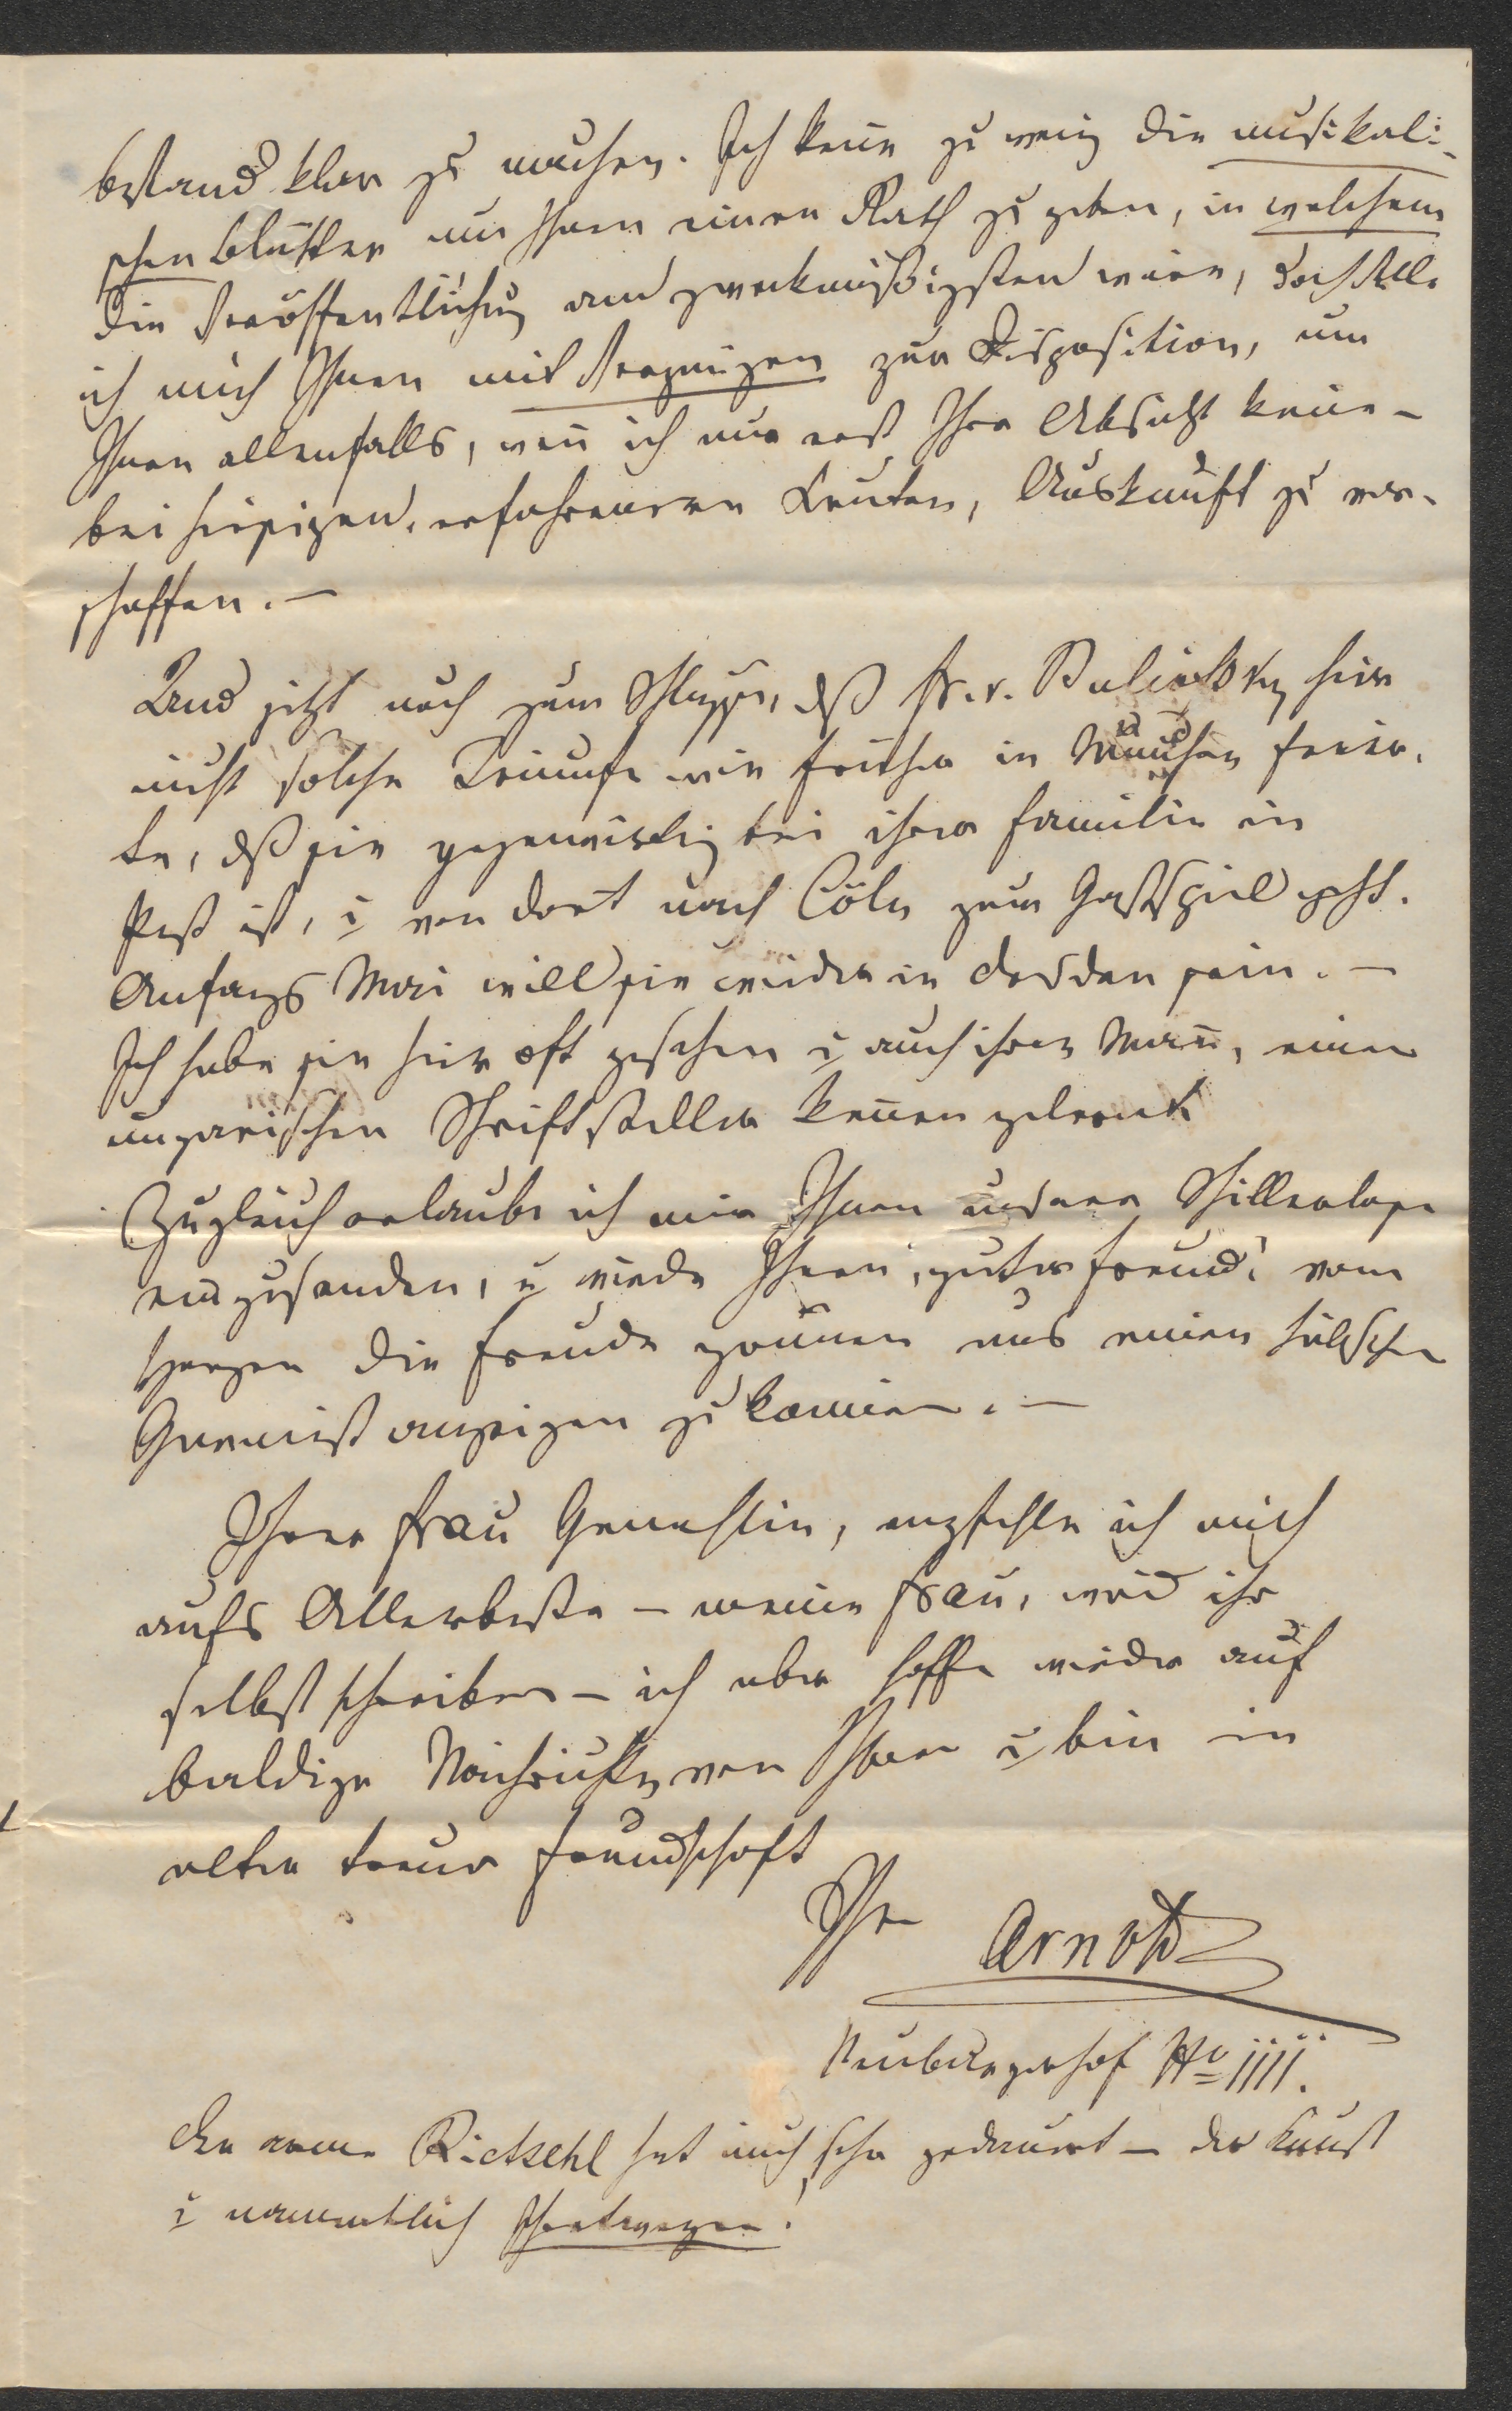 bestand klar zu machen. Ich kenne zu wenig die musikali-
schen Blätter um Ihnen einen Rath zu geben, in welchem
die Veröffentlichung am zweckmäßigsten wäre, doch stelle
ich mich Ihnen mit Vergnügen zur Disposition, um
Ihnen allenfalls, wen̄ ich nur erst Ihre Absicht ken̄e –
bei hiesigen, erfahreneren Leuten, Auskunft zu ver-
schaffen. –
Und jetzt noch zum Schluße, dß Fr. v. Bulіovsky hier
nicht solche Triumfe wie früher in München feier-
te, dß sie gegenwärtig bei ihrer Familie in
Pest ist, u von dort nach Cöln zum Gastspiel geht.
Anfangs Mai will sie wieder in Dresden sein. –
Ich habe sie hier oft gesehen u auch ihren Man̄, einen
ungarischen Schriftsteller ken̄en gelernt
Zugleich erlaube ich mir Ihnen unsere Schillerlose
einzusenden, u würde Ihnen, guter Freund! vom
Herzen die Freude gön̄en uns einen hübschen
Gewinst anzeigen zu kön̄en. –
Ihrer Frau Gemahlin, empfehle ich mich
aufs Allerbeste – meine Frau, wird ihr
selbst schreiben – ich aber hoffe wieder auf
baldige Nachrichten von Ihnen u bin in
alter treuer Freundschaft
Ihr Arnold
No IIII.
Der arme Rietschl hat mich sehr gedauert – der Kunst
u namentlich Ihretwegen!